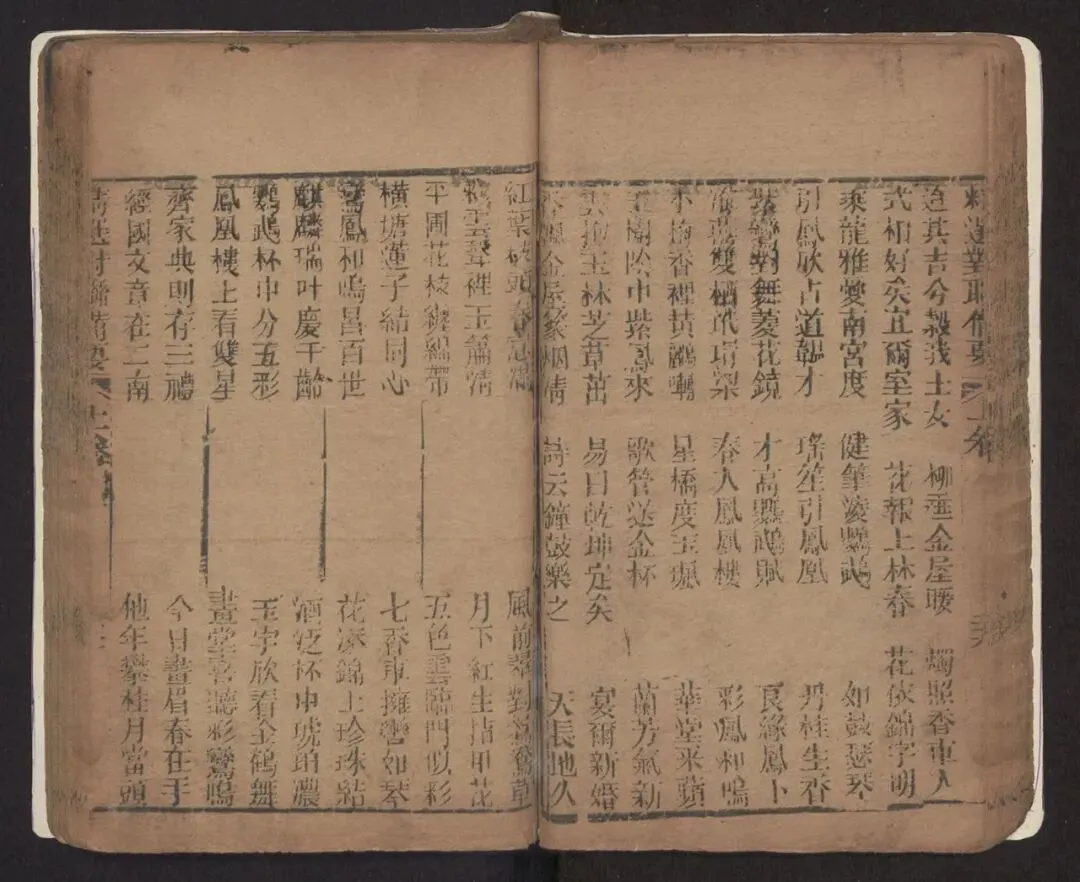 迨其吉兮穀我士女　柳垂金屋暖　燭照香車入
式相好矣宜爾室家　花報上林春　花依錦字明
乘龍雅愛南宮度　健筆凌鸚鵡　如鼓瑟琴
引鳳欣占道韞才　瑤笙引鳳凰　丹桂生香
紫鸞對舞菱花鏡　才高鸚鵡賦　良緣鳳卜
海燕雙栖玳瑁梁　春入鳳凰樓　彩鳳和鳴
香裡黃鸝囀　星橋度玉珮　華堂采蘋
樹陰中紫鳳來　歌管送金杯　蘭芳氣新
玉林芝草茁　易曰乾坤定矣　宴爾新婚
金屋篆烟清　詩云鐘鼓樂之　天長地久
紅葉　風前翠對鴛鴦草
聲裡玉簫清　月下紅生指甲花
平圃花枝繞繡帶　五色雲臨門似彩
橫塘蓮子結同心　七香車擁轡如琴
鸞鳳和鳴昌百世　花添錦上珍珠結
麒麟瑞叶慶千齡　酒泛杯中琥珀濃
鸚鵡杯中分五彩　玉字欣看金鶴舞
鳳凰樓上看雙星　畫堂喜聽彩鸞鳴
齊家典則存三禮　今日畫眉春在手
經國文章在二南　他年攀桂月當頭
上卷